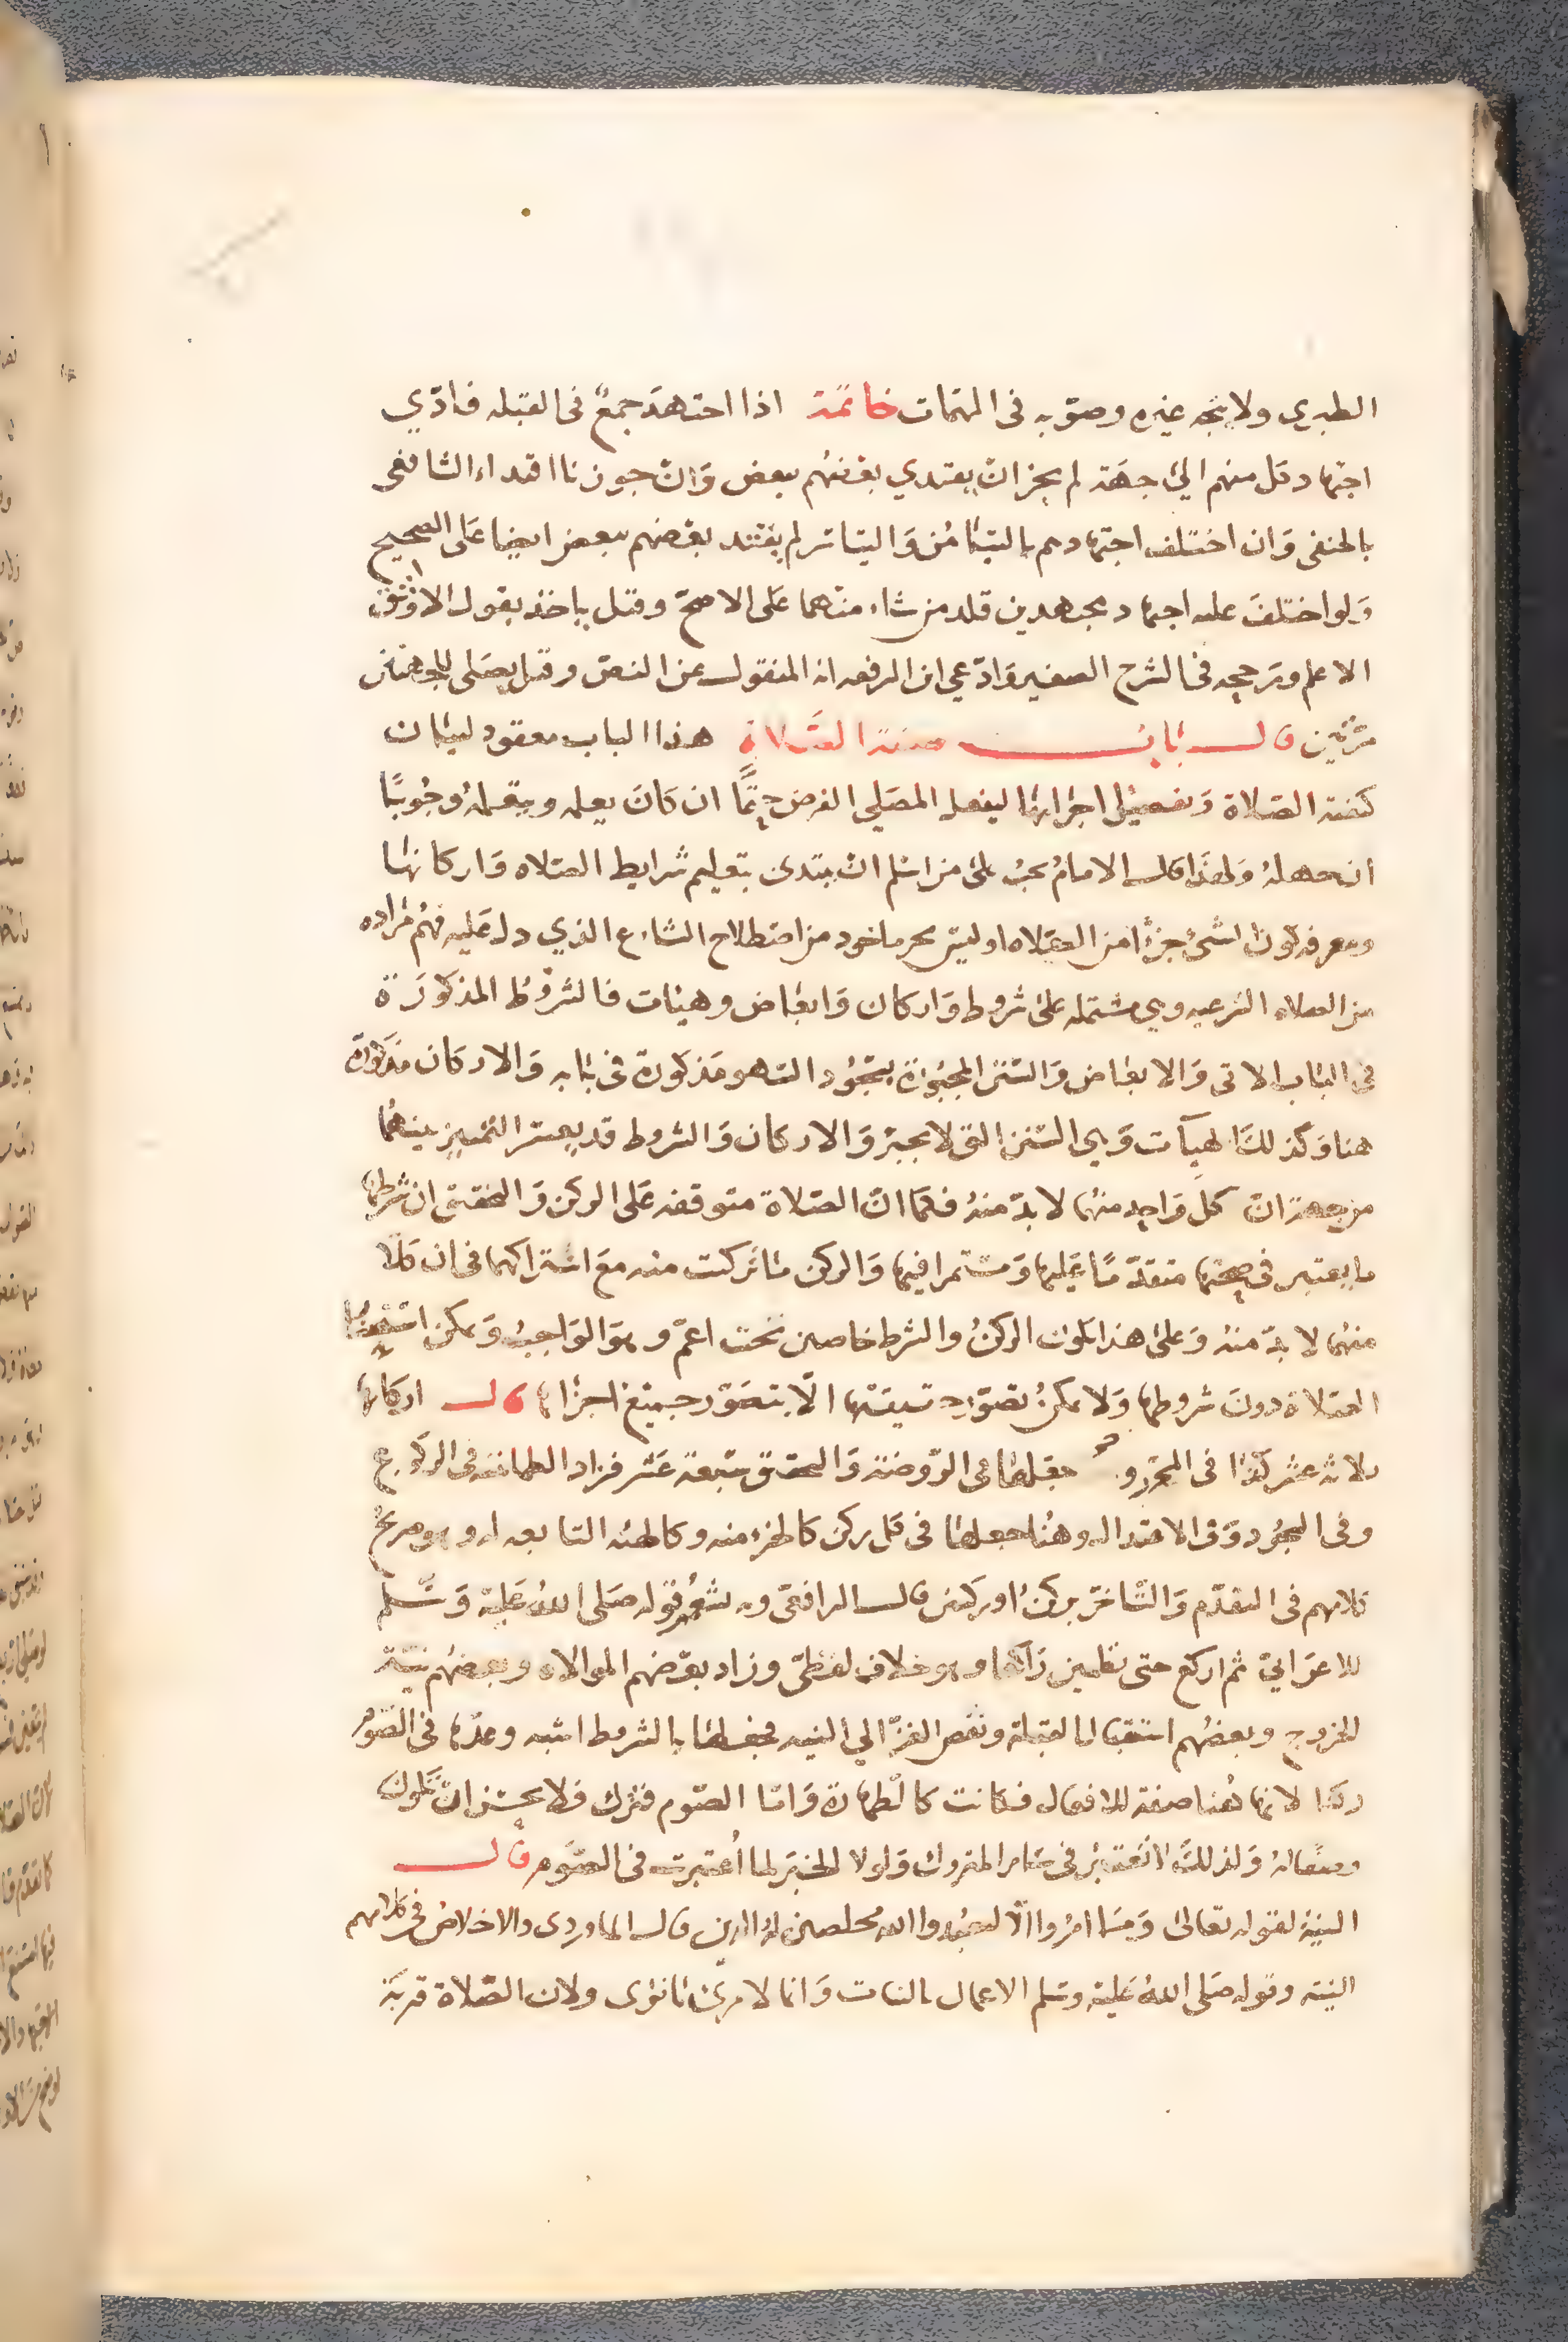 الطبرى ولا يتجه غيره وصوّبه فى المهمات خاتمة اذا اجتهد جمعٌ فى القبله فادّي
اجتهاد كل منهم الى جهة لم يجز ان يقتدي بعضهم ببعض وان جوزنا اقتداء الشافعى
بالحنفى وان اختلف اجتهادهم بالتيامن والتياسر لم يقتد بعضهم ببعض ايضا على الصحيح
ولو اختلف عليه اجتهاد مجتهدين قلد من شاء منهما على الاصح وقيل ياخذ بقول الاوثق
الاعلم ورجحه فى الشرح الصغير وادّعي ابن الرفعه انه المنقول عن النص وقيل يصلى للجهتين
مرتين قال باب صفة الصلاة هذا الباب معقود لبيان
كيفية الصلاة وتفصيل اجزائها ليفعل المصلي الفرض حتمًا ان كان يعلمه ويتعلمه وجوبًا
ان جهله ولهذا قال الامام يجب على من اسلم ان يبتدى بتعليم شرايط الصلاه واركانها
ومعرفه كون الشئ جزءًا من الصلاه او ليس بجزء ماخوذ من اصطلاح الشارع الذي دل عليه فهم مراده
من الصلاه الشرعيه وهي مشتمله على شروط واركان وابعاض وهيئات فالشروط المذكورة
فى الباب الاتى والابعاض والسنن المجبورة بسجود السهو مذكورة فى بابه والاركان مذكورة
هنا وكذلك الهيآت وهي السنن التى لا تجبر والاركان والشروط قد يعسر التمييز بينهما
من جهة ان كل واحد منهما لا بد منه فكما ان الصلاة متوقفه على الركن والتحقيق ان شرطها
ما يعتبر فى صحتها متقدّمًا عليها ومستمرا فيها والركن ما تركبت منه مع اشتراكهما فى ان كلا
منهما لا بدّ منه وعلى هذا يكون الركن والشرط خاصين تحت اعمّ وهو الواجب ويمكن
الصلاة دون شروطها ولا يمكن تصوّر حقيقتها الّا بتصوّر جميع اجزائها قال اركانها
ثلاثة عشر كذا فى المحرر وجعلها فى الروضة والتحقيق سبعة عشر فزاد الطمانينه فى الركوع
وفى السجود وفى الاعتدال وهنا جعلها فى كل ركن كالجزء منه وكالهيئه التابعه له وهو صريح
كلامهم فى التقدّم والتاخر بركن او ركنين قال الرافعى وبه يشعر قوله صلى الله عليه وسلم
للاعرابيّ ثم اركع حتى تطمين راكعا وهو خلاف لفظىّ وزاد بعضهم الموالاه وبعضهم نيّة
الخروج وبعضهم استقبال القبلة ونقص الغزّالي النيه فجعلها بالشروط اشبه وعدّها فى الصوم
ركنا لانها هنا صفة للافعال فكانت كالطهارة وامّا الصوم فترك فلا يحسن ان تكون
صفة له ولذلك لا تعتبر فى سائر المتروك ولولا الخبر لما اعتبرت فى الصوم قال
النية لقوله تعالى وما امروا الّا ليعبدوا الله مخلصين له الدين قال الماوردى والاخلاص فى كلامهم
النية وقوله صلى الله عليه وسلم الاعمال بالنيات وانما لامرئ ما نوى ولان الصلاة قربة